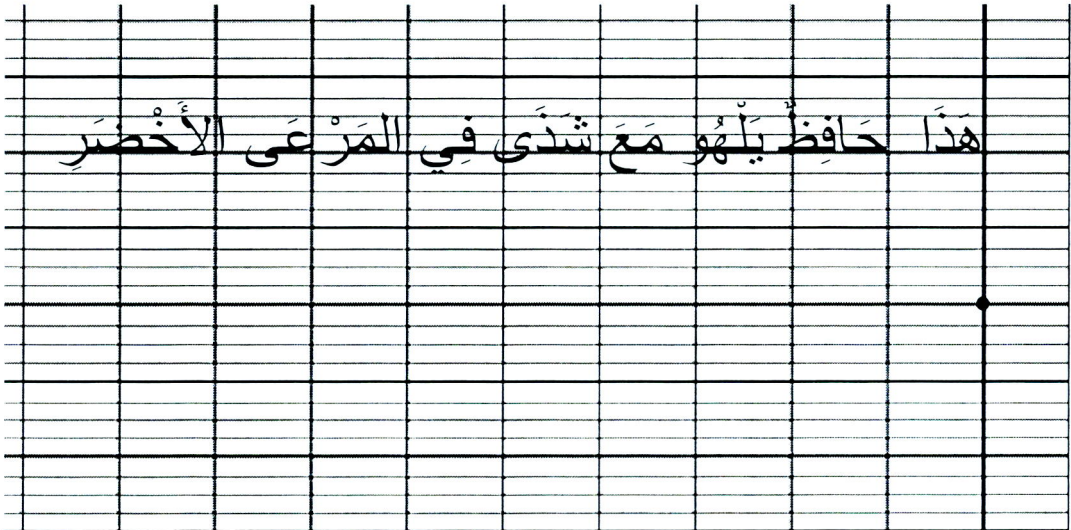 هَذَا حَافِظٌ يَلْهُو مَعَ شَذَى فِي المَرْعَى الأَخْضَرِ